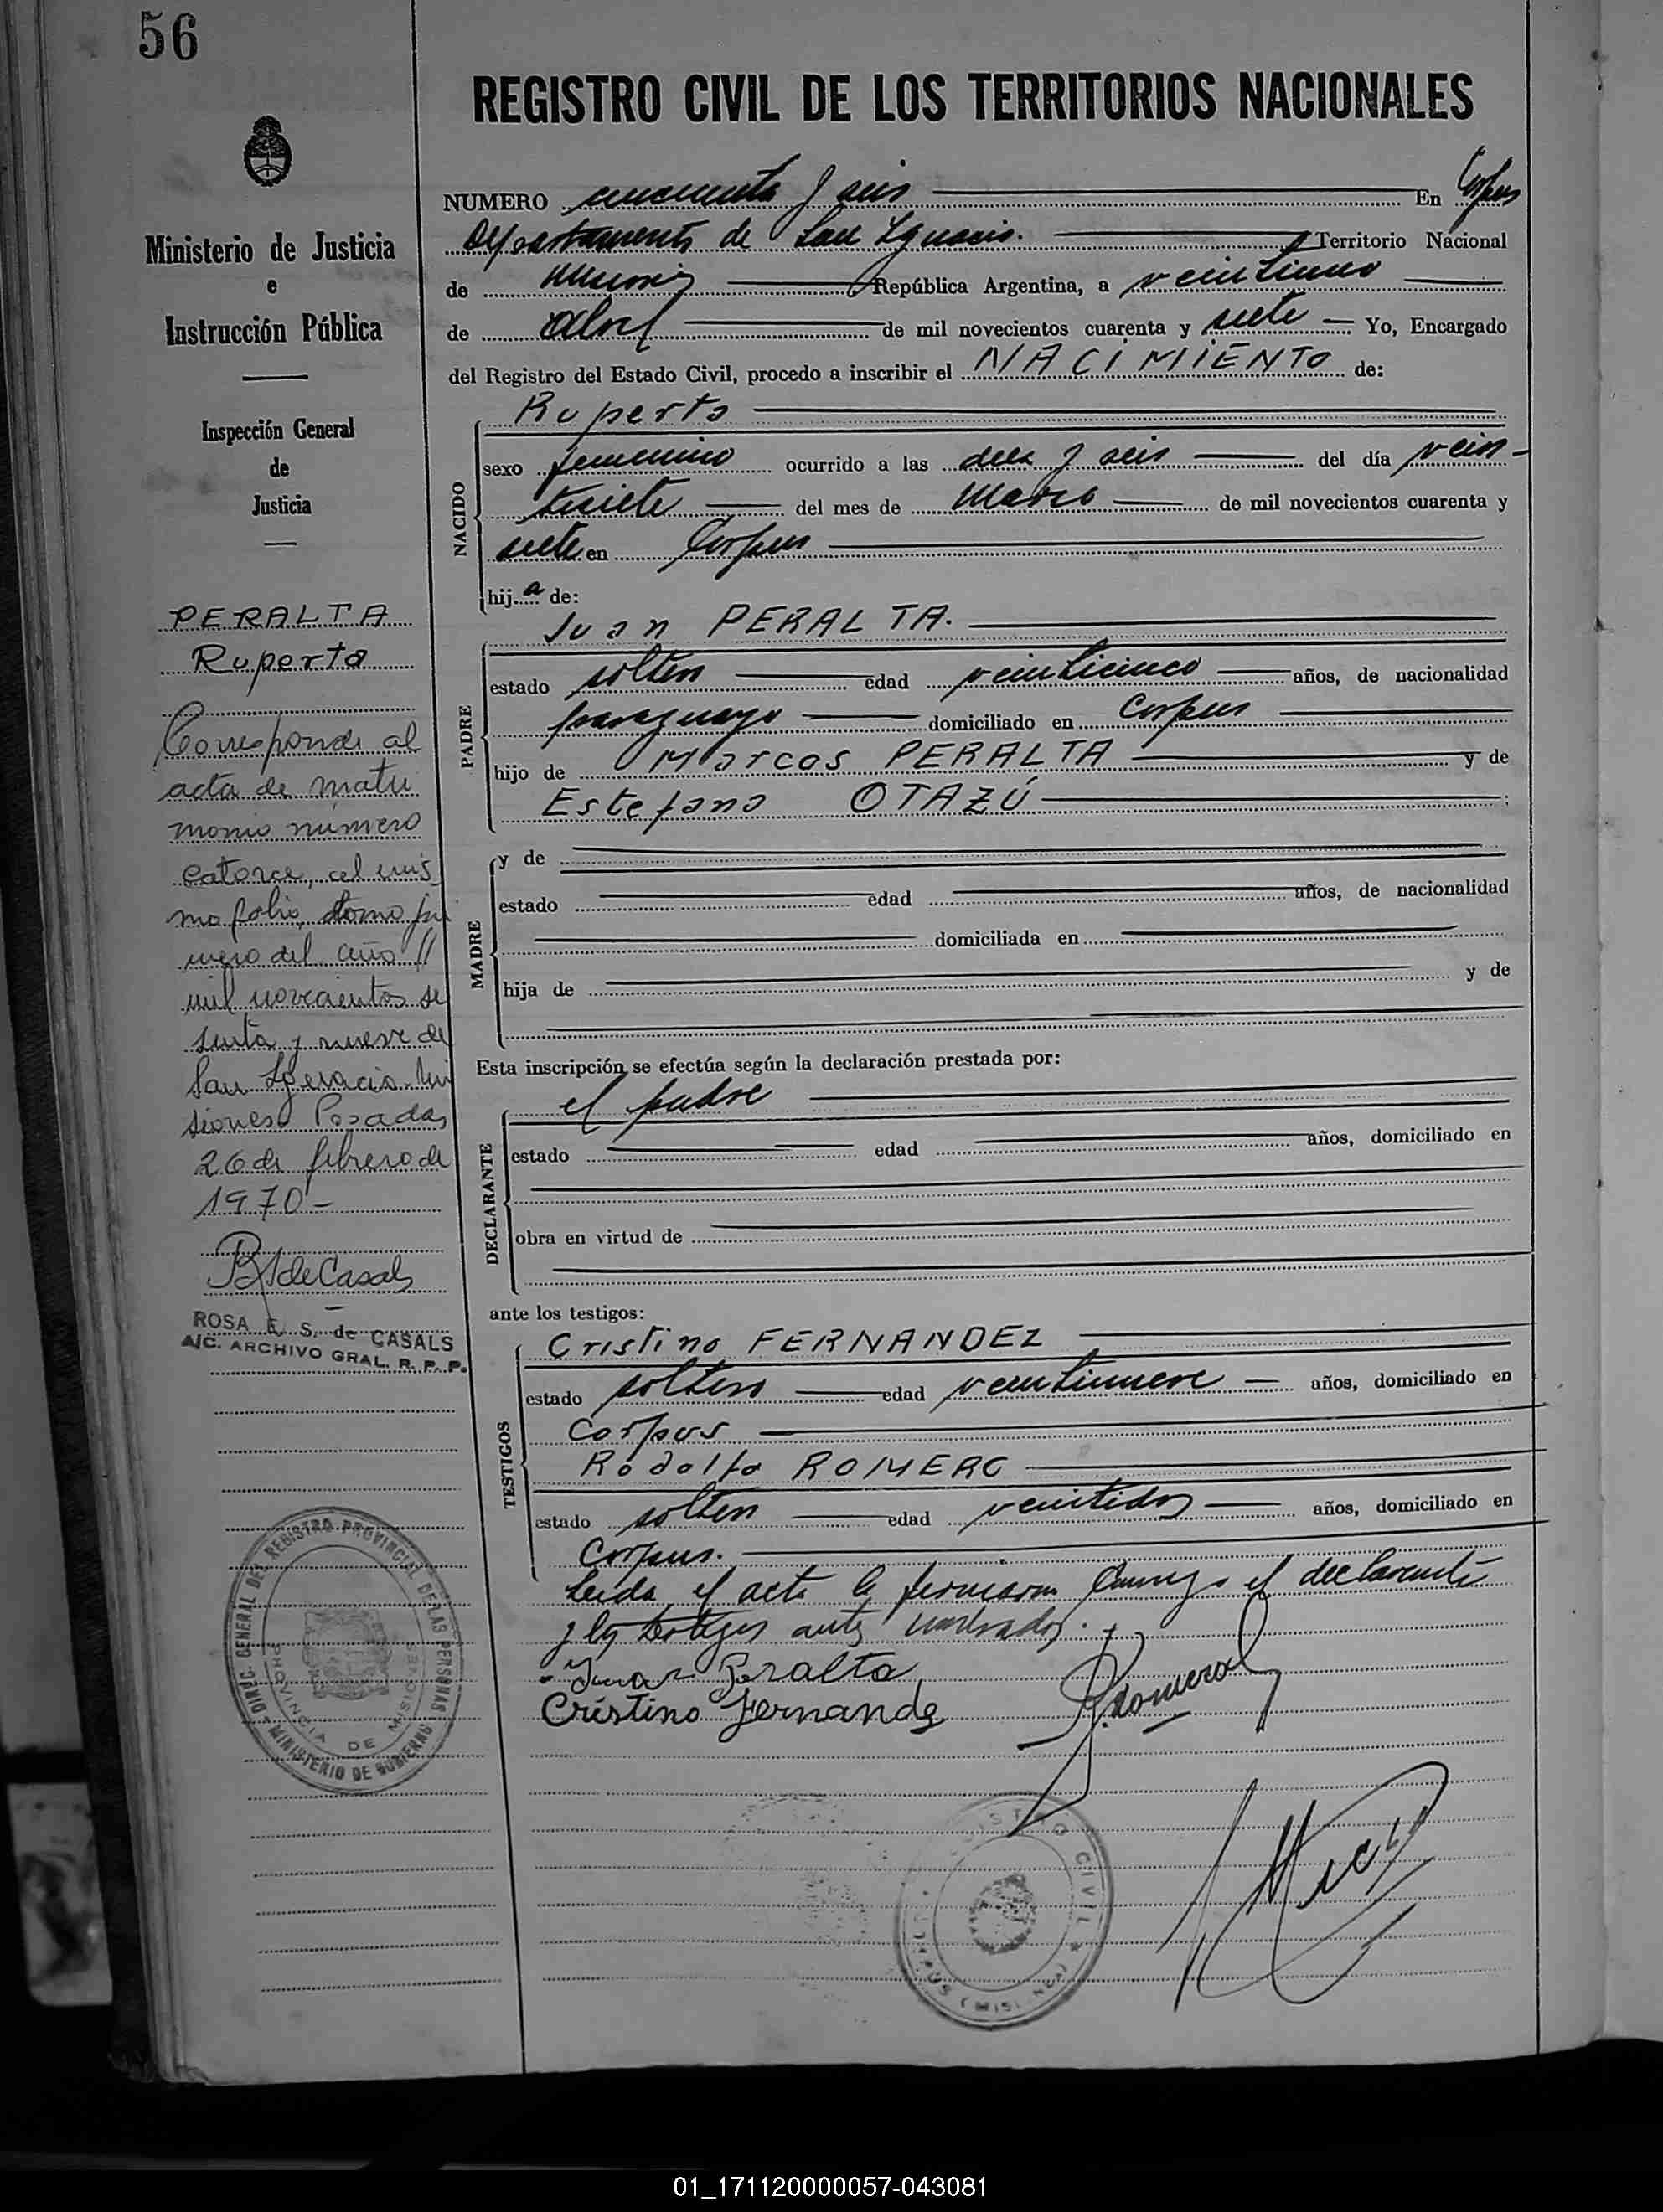 56
REGISTRO CIVIL DE LOS TERRITORIOS NACIONALES
Ministerio de Justicia
e
Instrucción Pública
Inspección General
de
Justicia
PERALTA
Ruperta
Corresponde al
acta de matri
monio número
catorce, al mis
mo folio, tomo pri
mero del año //
mil novecientos se
senta y nueve de
San Ignacio. Mi
siones Posadas
26 de febrero de
1970-
ROSA E. S. de CASALS
A/C. ARCHIVO GRAL. R. P. P.
DIREC. GENERAL DEL REGISTRO PROVINCIAL DE LAS PERSONAS
MINISTERIO DE GOBIERNO
PROVINCIA DE MISIONES
NUMERO cincuenta y seis En Corpus
Departamento de San Ignacio. Territorio Nacional
de Misiones República Argentina, a veintiuno
de abril de mil novecientos cuarenta y siete Yo, Encargado
del Registro del Estado Civil, procedo a inscribir el NACIMIENTO de:
NACIDO
Ruperta
sexo femenino ocurrido a las diez y seis del día vein-
tisiete del mes de Marzo de mil novecientos cuarenta y
siete en Corpus
hij a de:
PADRE
Juan PERALTA.
estado soltero edad veinticinco años, de nacionalidad
paraguayo domiciliado en Corpus
hijo de Marcos PERALTA y de
Estefana OTAZÚ ;
MADRE
y de
estado edad años, de nacionalidad
domiciliada en
hija de y de
Esta inscripción se efectúa según la declaración prestada por:
DECLARANTE
el padre
estado edad años, domiciliado en
obra en virtud de
ante los testigos:
TESTIGOS
Cristino FERNANDEZ
estado soltero edad veintinueve años, domiciliado en
Corpus
Rodolfo ROMERO
estado soltero edad veintidos años, domiciliado en
Corpus.
Leida el acta la firmaron conmigo el declarante
y los testigos antes nombrados.
Juan Peralta
Cristino Fernande
Romero
REGISTRO CIVIL
CORPUS (MISIONES)
01_171120000057-043081